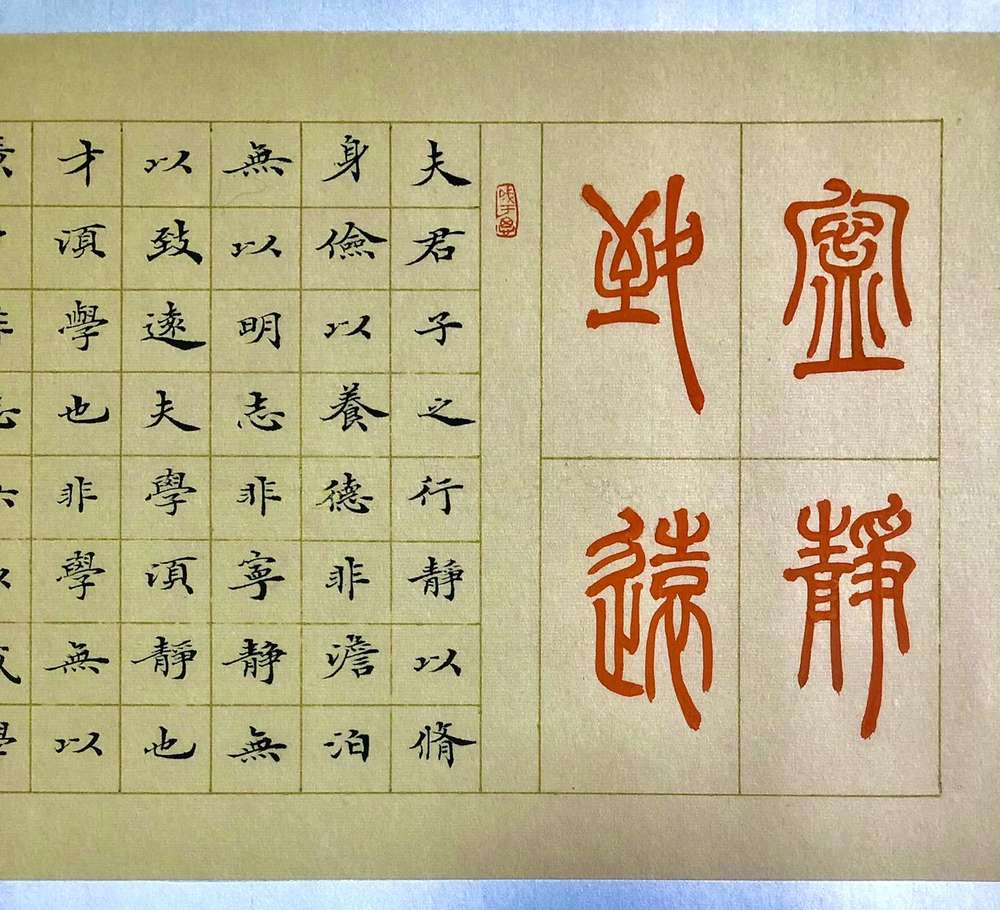 寧靜
致遠
夫君子之行靜以脩
身儉以養德非澹泊
無以明志非寧靜無
以致遠夫學須靜也
才須學也非學無以